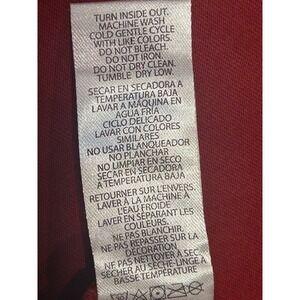 TURN INSIDE OUT.
MACHINE WASH
COLD GENTLE CYCLE
WITH LIKE COLORS.
DO NOT BLEACH.
DO NOT IRON.
DO NOT DRY CLEAN.
TUMBLE DRY LOW.
SECAR EN SECADORA A
TEMPERATURA BAJA
LAVAR A MÁQUINA EN
AGUA FRÍA
CICLO DELICADO
LAVAR CON COLORES
SIMILARES
NO USAR BLANQUEADOR
NO PLANCHAR
NO LIMPIAR EN SECO
SECAR EN SECADORA
A TEMPERATURA BAJA
RETOURNER SUR L'ENVERS.
LAVER À LA MACHINE À
L'EAU FROIDE
LAVER EN SÉPARANT LES
COULEURS.
NE PAS BLANCHIR.
NE PAS REPASSER SUR LA
DÉCORATION
NE PAS NETTOYER À SEC.
SÉCHER AU SÈCHE-LINGE À
BASSE TEMPÉRATURE